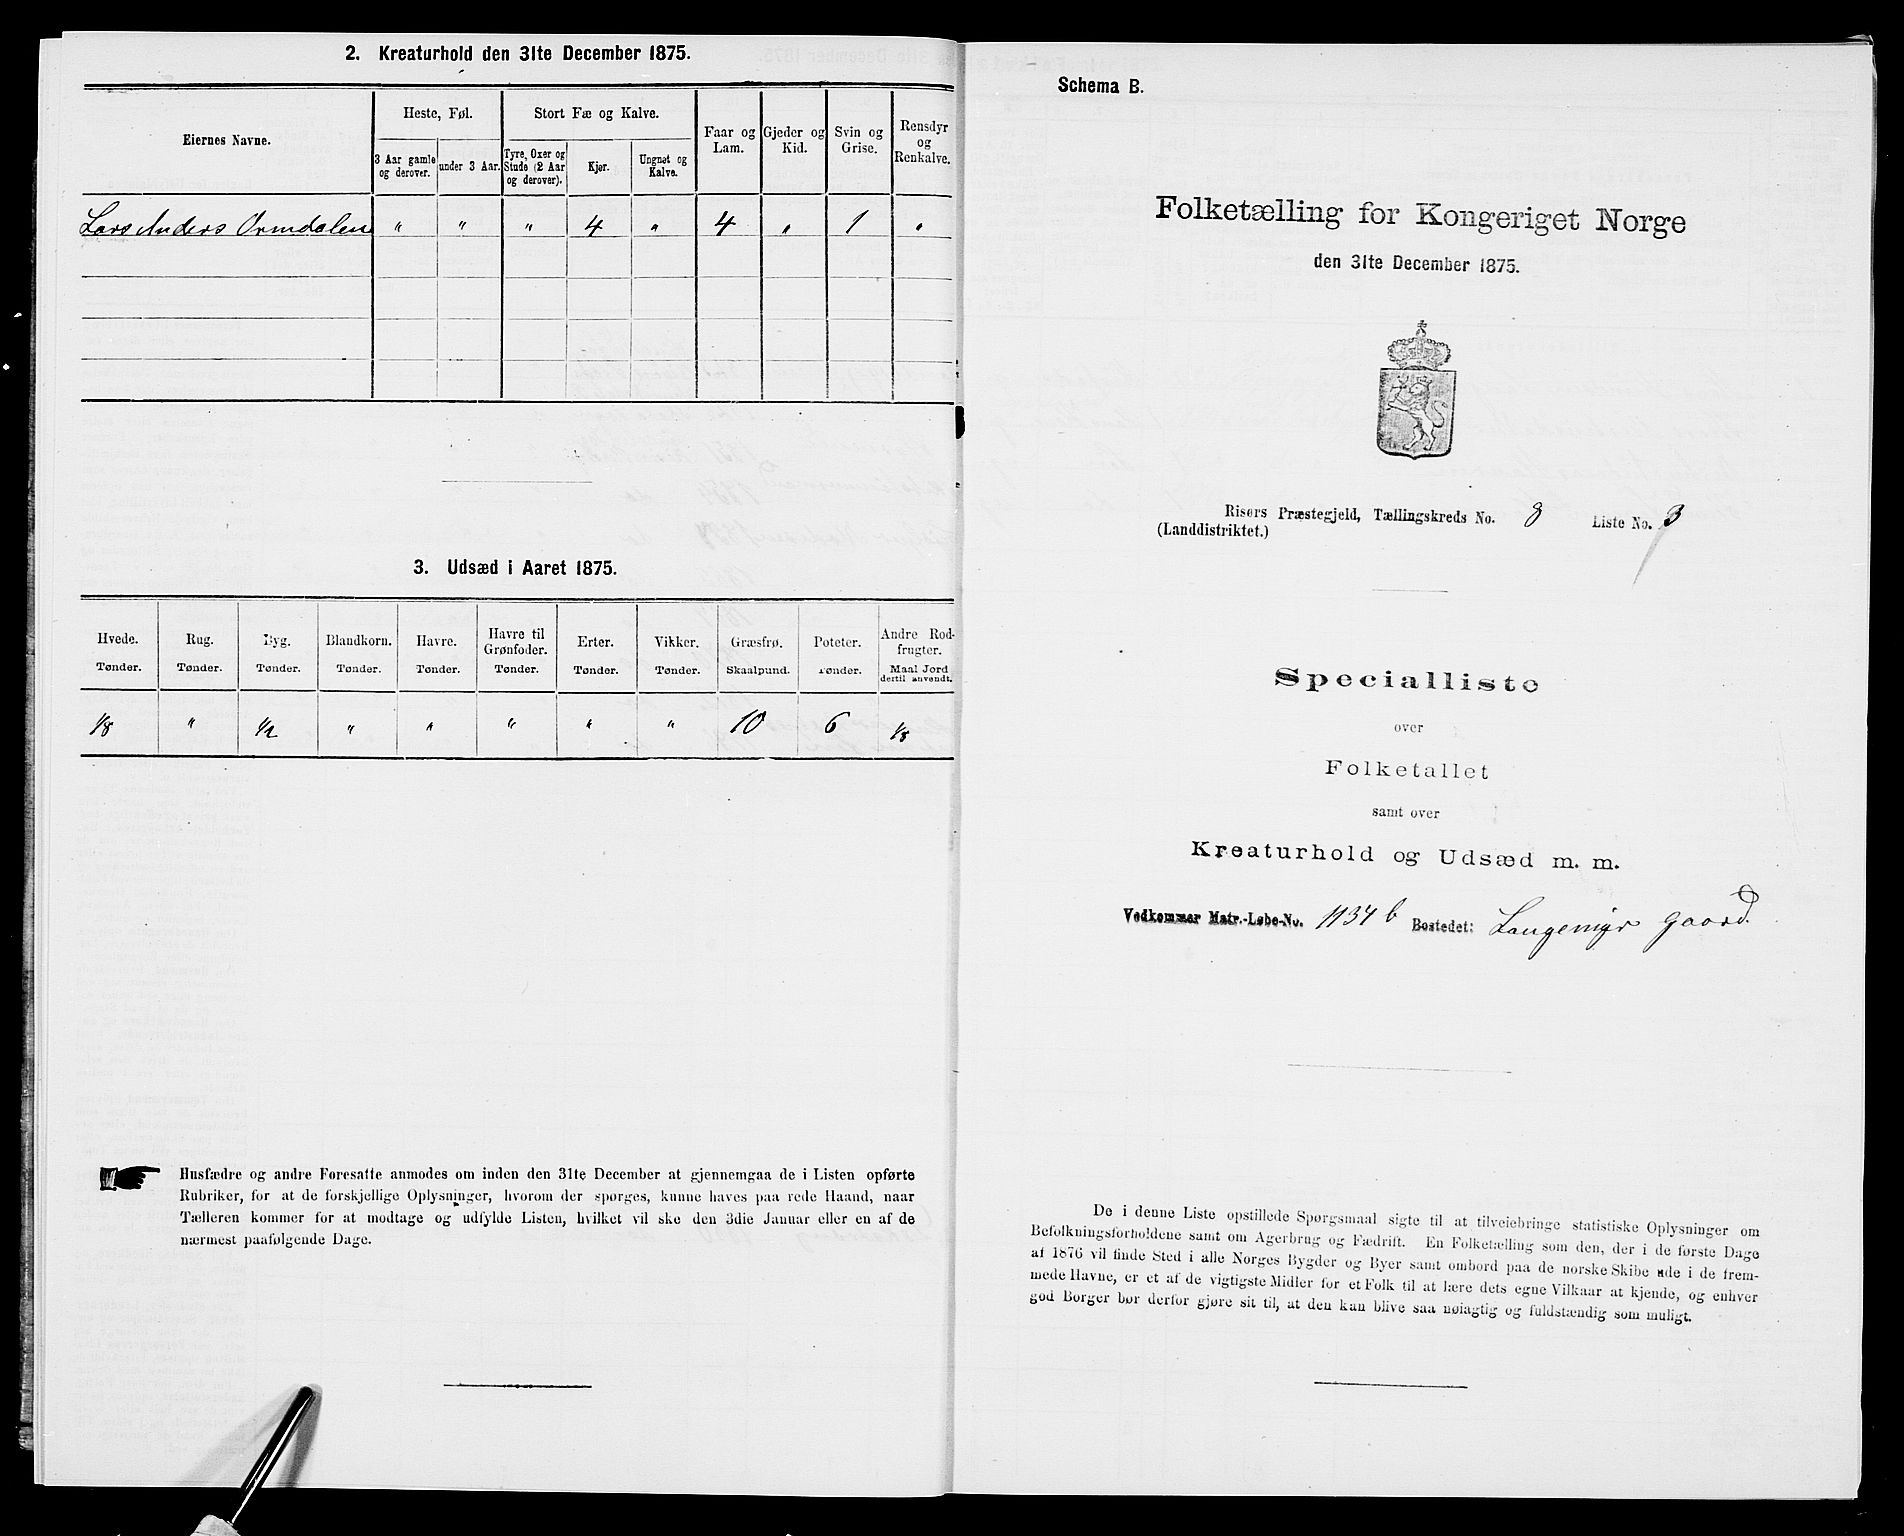 2. Kreaturhold den 31te December 1875.
Eiernes Navne.
Heste, Føl.
Stort Fæ og Kalve.
Faar og Lam.
Gjeder og Kid.
Svin og Grise.
Rensdyr og Renkalve.
3 Aar gamle og derover.
under 3 Aar.
Tyre, Oxer og Stude (2 Aar og derover).
Kjør.
Ungnøt og Kalve.
Lars Anders Ormdalen " " " 4 " 4 " 1 "
3. Udsæd i Aaret 1875.
Hvede. Rug. Byg. Blandkorn. Havre. Havre til Grønfoder. Erter. Vikker. Græsfrø. Poteter. Andre Rodfrugter.
Tønder. Tønder. Tønder. Tønder. Tønder. Tønder. Tønder. Tønder. Skaalpund. Tønder. Maal Jord dertil anvendt.
1/8 " 1/2 " " " " " 10 6 1/8
Husfædre og andre Foresatte anmodes om inden den 31te December at gjennemgaa de i Listen opførte
Rubriker, for at de forskjellige Oplysninger, hvorom der spørges, kunne haves paa rede Haand, naar
Tælleren kommer for at modtage og udfylde Listen, hvilket vil ske den 3die Januar eller en af de
nærmest paafølgende Dage.
Schema B.
Folketælling for Kongeriget Norge
den 31te December 1875.
Risørs Præstegjeld, Tællingskreds No. 8 Liste No. 3
(Landdistriktet.)
Specialliste
over
Folketallet
samt over
Kreaturhold og Udsæd m. m.
Vedkommer Matr.-Løbe-No. 1134 b Bostedet: Langemyr gaard.
De i denne Liste opstillede Spørgsmaal sigte til at tilveiebringe statistiske Oplysninger om
Befolkningsforholdene samt om Agerbrug og Fædrift. En Folketælling som den, der i de første Dage
af 1876 vil finde Sted i alle Norges Bygder og Byer samt ombord paa de norske Skibe ude i de frem-
mede Havne, er et af de vigtigste Midler for et Folk til at lære dets egne Vilkaar at kjende, og enhver
god Borger bør derfor gjøre sit til, at den kan blive saa nøiagtig og fuldstændig som muligt.